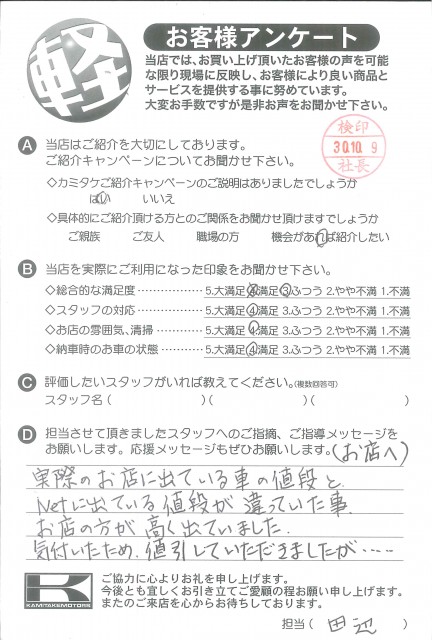 軽
お客様アンケート
当店では、お買い上げ頂いたお客様の声を可能
な限り現場に反映し、お客様により良い商品と
サービスを提供する事に努めています。
大変お手数ですが是非お声をお聞かせ下さい。
A 当店はご紹介を大切にしております。
ご紹介キャンペーンについてお聞かせ下さい。
検印
30.10.9
社長
◇カミタケご紹介キャンペーンのご説明はありましたでしょうか
はい いいえ
◇具体的にご紹介頂ける方とのご関係をお聞かせ頂けますでしょうか
ご親族 ご友人 職場の方 機会があれば紹介したい
B 当店を実際にご利用になった印象をお聞かせ下さい。
◇総合的な満足度 …………… 5.大満足 4.満足 3.ふつう 2.やや不満 1.不満
◇スタッフの対応 …………… 5.大満足 4.満足 3.ふつう 2.やや不満 1.不満
◇お店の雰囲気、清掃 ……… 5.大満足 4.満足 3.ふつう 2.やや不満 1.不満
◇納車時のお車の状態 ……… 5.大満足 4.満足 3.ふつう 2.やや不満 1.不満
C 評価したいスタッフがいれば教えてください。(複数回答可)
スタッフ名( )( )( )
D 担当させて頂きましたスタッフへのご指摘、ご指導メッセージを
お願いします。応援メッセージもぜひお願いします。(お店へ)
実際のお店に出ている車の値段と
Netに出ている値段が違っていた事.
お店の方が高く出ていました.
気付いたため.値引していただきましたが‥‥
K
KAMITAKE MOTORS
ご協力に心よりお礼を申し上げます。
今後とも宜しくお引き立てご愛顧の程お願い申し上げます。
またのご来店を心からお待ちしております。
担当( 田辺 )